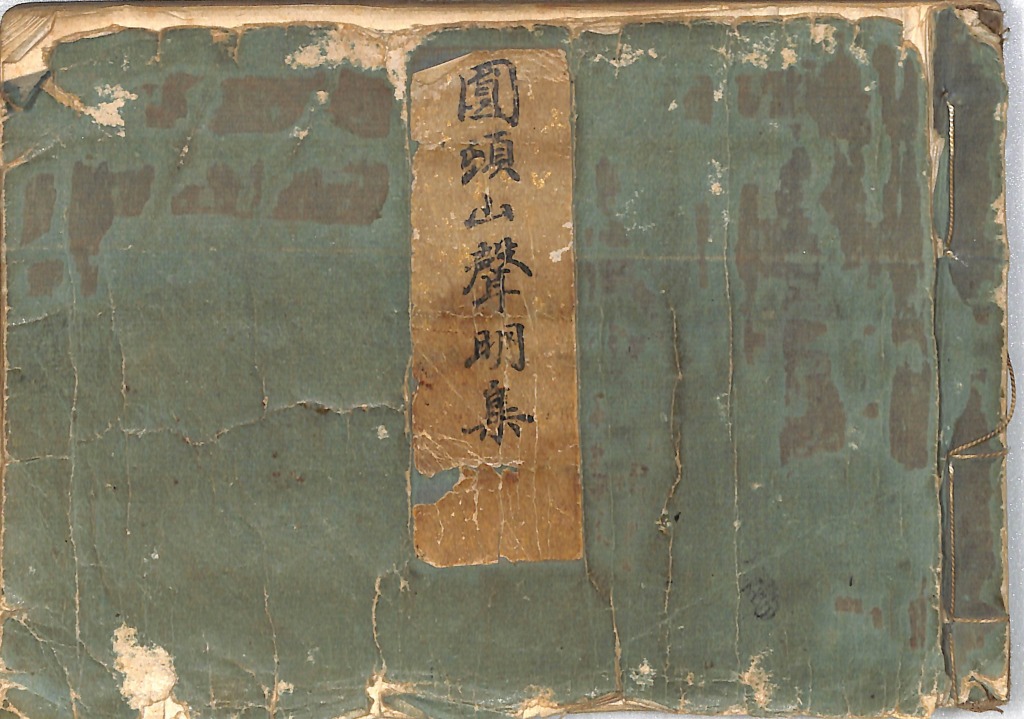 圓頓山聲明集